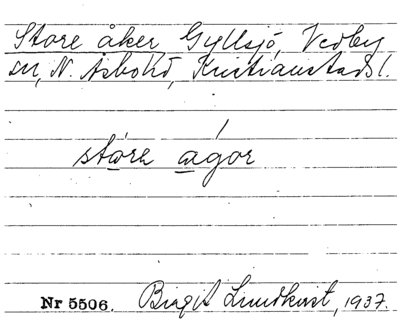 Store åker Gyllsjö, Vedby
sn, N. Åsbohd, Kristianstads l.
störe agor
Nr 5506. Birgit Lundkvist, 1937.